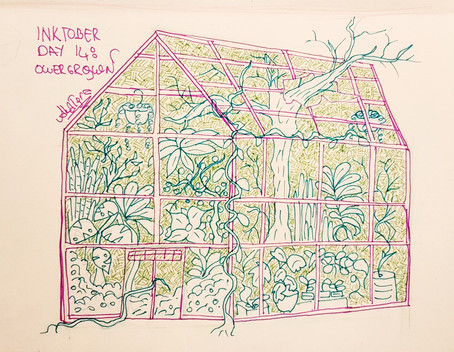 INKTOBER
DAY 14:
OVERGROWN